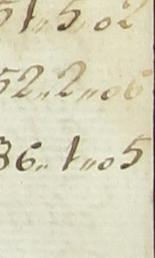 51„5„02
52„2„06
36„1„05